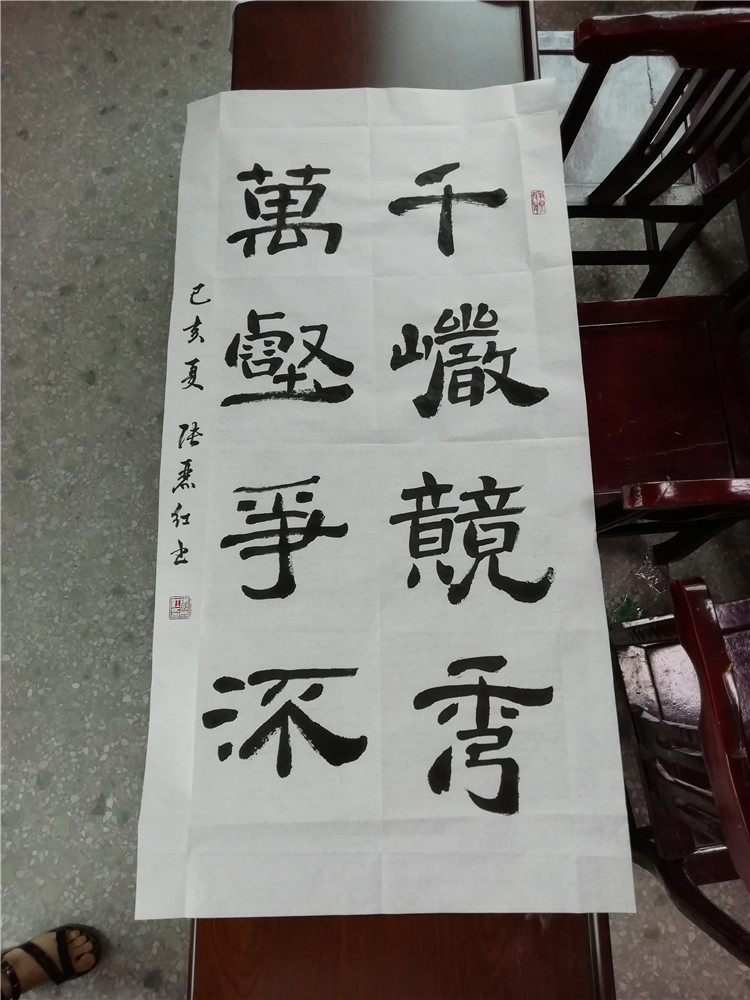 千巗競秀
萬壑爭流
己亥夏 红书